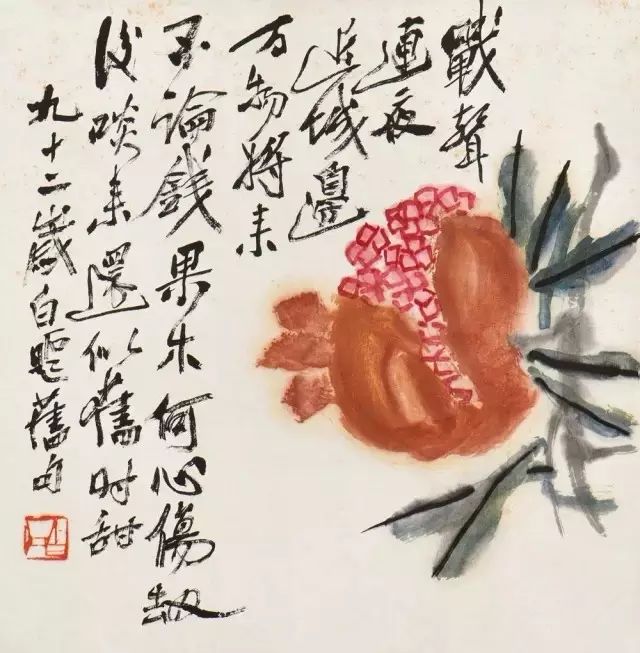 戰聲
連夜
城邊
万物將来
不論錢果木何心傷劫
後啖来還似舊时甜
九十二歲白題舊句